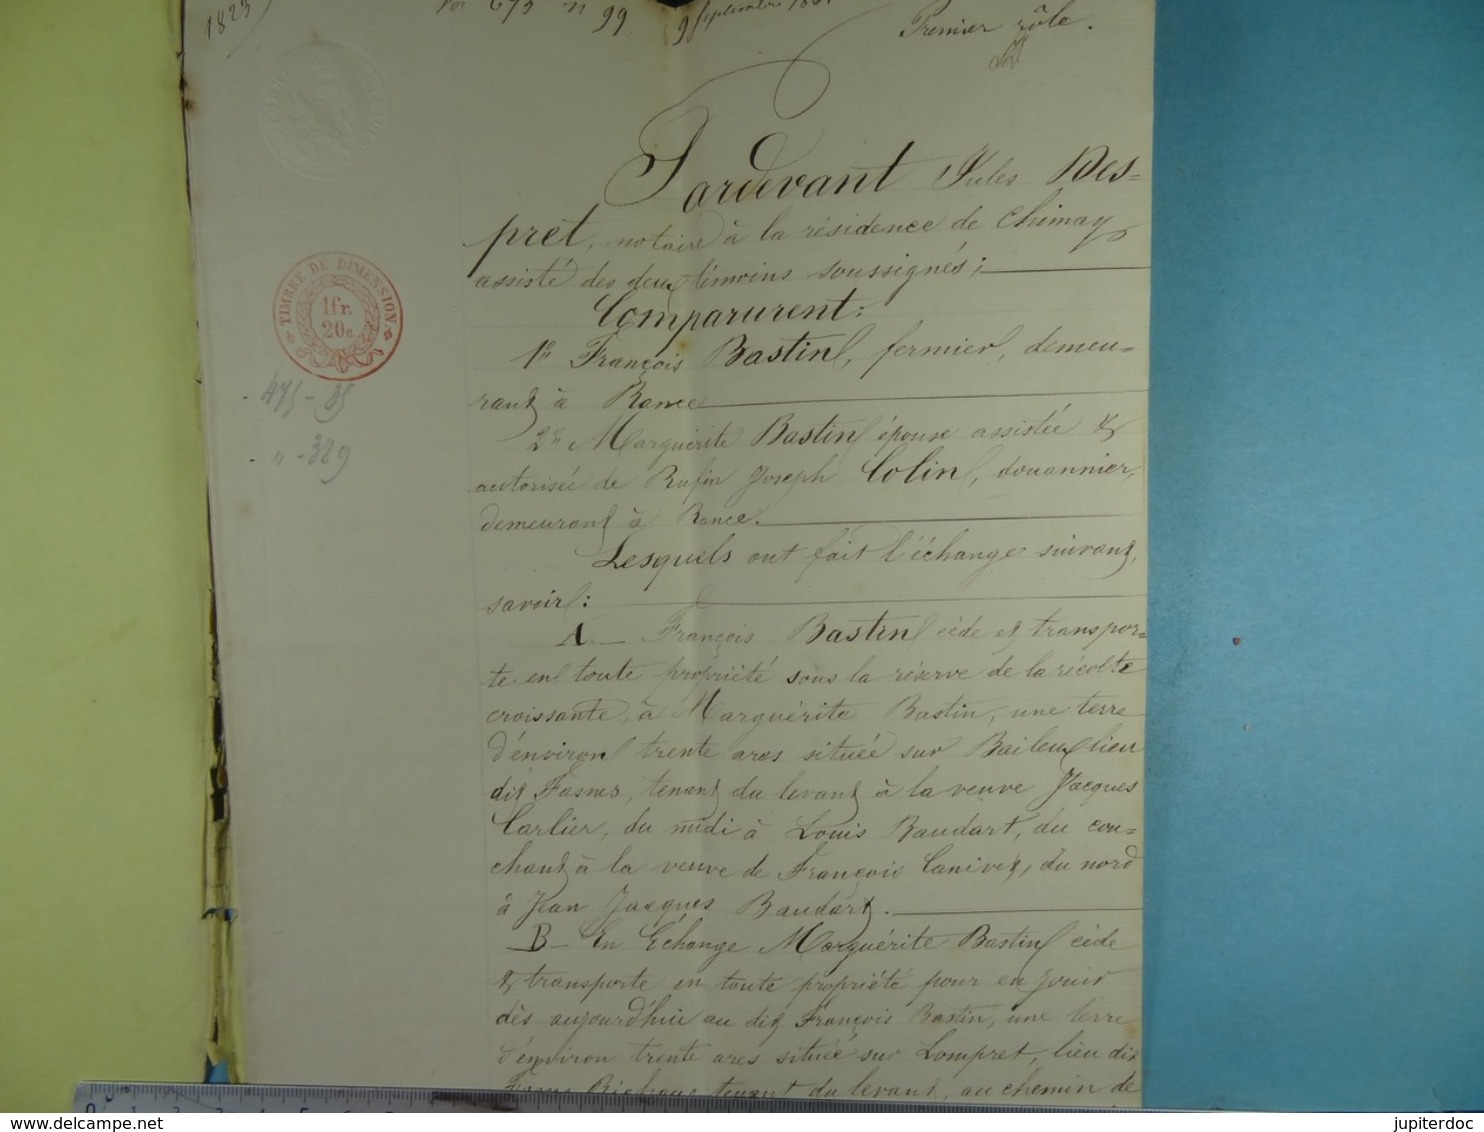 1823
Vol 673 n 99 9 Septembre
Premier rôle.
Pardevant Jules Des-
prêt, notaire à la résidence de Chimay
assisté des deux témoins soussignés;
Comparurent:
TIMBRE DE DIMENSION
1fr.
20c.
1º François Bastin, fermier, demeu-
rant à Rance
475 - 35
2º Marguérite Bastin épouse assistée &
" - 389
autorisée de Rufin Joseph Colin, douannier,
demeurant à Rance.
Lesquels ont fait l'échange suivant,
savoir:
A — François Bastin cède et transpor-
te en toute propriété sous la réserve de la récolte
croissante, à Marguérite Bastin, une terre
d'énviron trente ares située sur Baileux lieu
dit Fasnes, tenant du levant à la veuve Jacques
Carlier, du midi à Louis Baudart, du cou-
chant à la veuve de François Canivet, du nord
à Jean Jacques Baudart.
B — En Échange Marguérite Bastin cède
& transporte en toute propriété pour en jouir
dès aujourd'hui au dit François Bastin, une terre
d'énviron trente ares située sur Lompret, lieu dit
tenant du levant, au chemin de
0 1 2 3 4 5 6
jupiterdoc